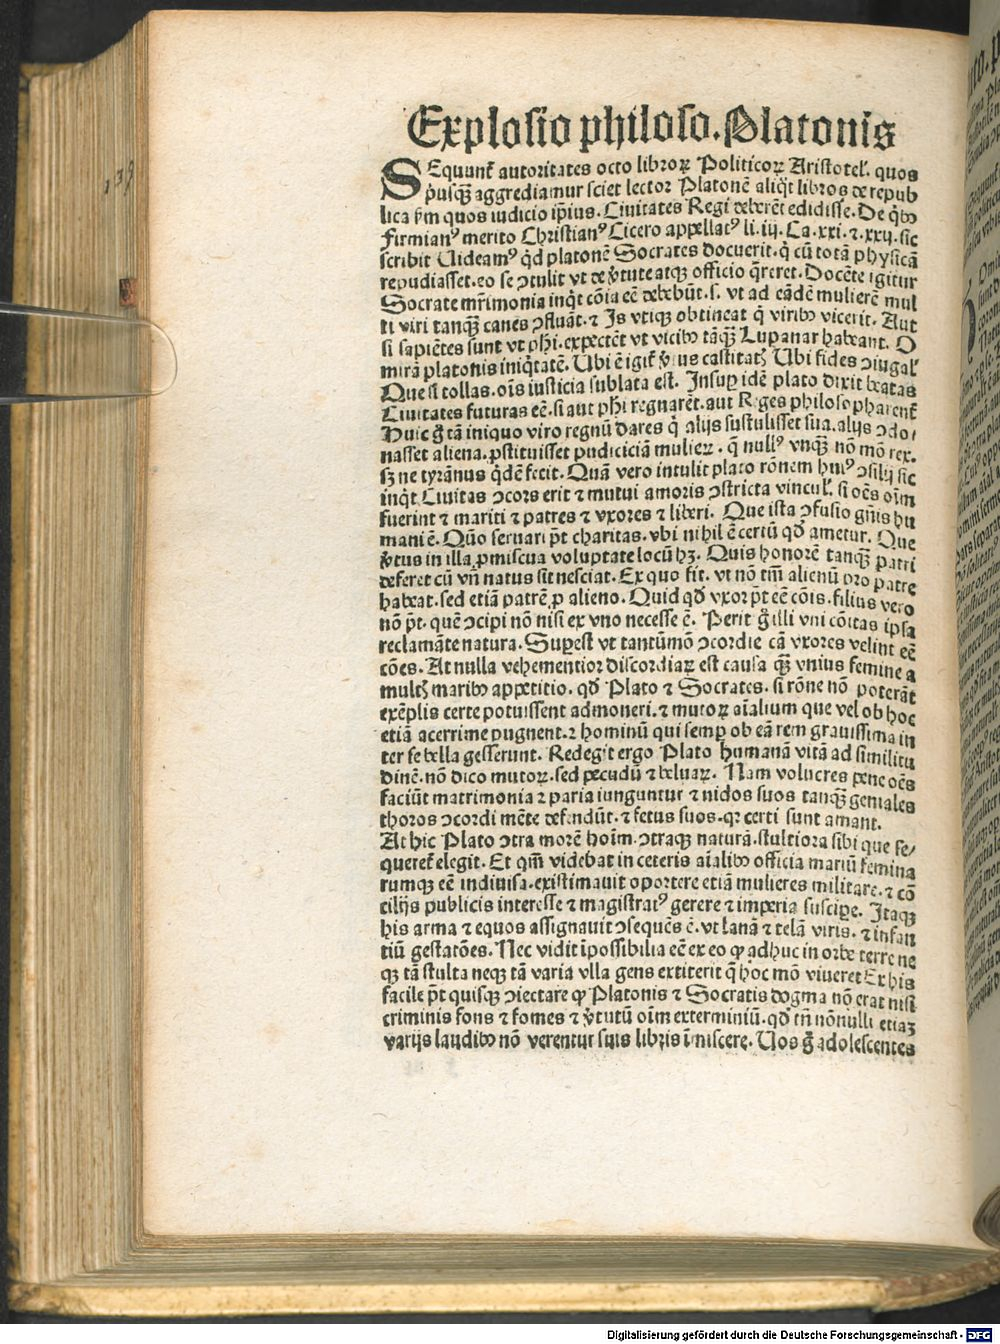 Explosio philoso. Platonis
SEquunt᷑ autoritates octo libroꝝ Politicoꝝ Aristotel᷑. quos
pͥusqꝫ aggrediamur sciet lector Platonē aliqͥt libros de repub
lica pͥm quos iudicio ip̄ius. Ciuitates Regi deberēt edidisse. De qͥbꝰ
firmianꝰ merito Christianꝰ Cicero appellatꝰ li. iij. Ca. xxi. ⁊ xxij. sic
scribit Uideamꝰ qͥd platonē Socrates docuerit. qͥ cū totā physicā
repudiasset. eo se ↄtulit vt de v̓tute atqꝫ officio qͥreret. Docēte igitur
Socrate mr̄imonia inqͥt cōia eē debebūt. s. vt ad eādē mulierē mul
ti viri tanqꝫ canes ↄfluāt. ⁊ Is vtiqꝫ obtineat qͥ viribꝰ vicerit. Aut
si sapiētes sunt vt phi̅. expectēt vt vicibꝰ tāqꝫ Lupanar habeant. O
mirā platonis iniqͥtatē. Ubi ē igit᷑ v̓tus castitatꝭ Ubi fides ↄiugal᷑
Que si tollas. oīs iusticia sublata est. Insuꝑ idē plato dixit beatas
Ciuitates futuras eē. si aut phi̅ regnarēt. aut Reges philosopharent᷑
Huic g̊ tā iniquo viro regnū dares qͥ alijs sustulisset sua. alijs ↄdo/
nasset aliena. ꝓstituisset pudiciciā mulieꝝ. qͣ nullꝰ vnqꝫ nō mō rex.
sꝫ ne tyrānus qͥdē fecit. Quā vero intulit plato rōnem huiꝰ ↄsilij sic
inqͥt Ciuitas ↄcors erit ⁊ mutui amoris ↄstricta vincul᷑. si oēs oīm
fuerint ⁊ mariti ⁊ patres ⁊ vxores ⁊ liberi. Que ista ↄfusio gn̄is hu
mani ē. Quō seruari p̄t charitas. vbi nihil ē certū qd̄ ametur. Que
v̓tus in illa ꝓmiscua voluptate locū hꝫ. Quis honorē tanqꝫ patri
deferet cū vn̄ natus sit nesciat. Ex quo fit. vt nō tm̄ alienū pro patre
habeat. sed etiā patrē ꝓ alieno. Quid qd̄ vxor p̄t eē cōis. filius vero
nō p̄t. quē ↄcipi nō nisi ex vno necesse ē. Perit g̊ illi vni cōitas ipsa
reclamāte natura. Suꝑest vt tantūmō ↄcordie cā vxores velint eē
cōes. At nulla vehementior discordiaꝝ est causa qꝫ vnius femine a
multꝭ maribꝰ appetitio. qd̄ Plato ⁊ Socrates. si rōne nō poterāt
exēplis certe potuissent admoneri. ⁊ mutoꝝ aīalium que vel ob hoc
etiā acerrime pugnent. ⁊ hominū qui semꝑ ob eā rem grauissima in
ter se bella gesserunt. Redegit ergo Plato humanā vitā ad similitu
dinē. nō dico mutoꝝ. sed pecudū ⁊ beluaꝝ. Nam volucres pene oēs
faciūt matrimonia ⁊ paria iunguntur ⁊ nidos suos tanqꝫ geniales
thoros ↄcordi mēte defendūt. ⁊ fetus suos. qꝛ certi sunt amant.
At hic Plato ↄtra morē hoīm. ↄtraqꝫ naturā. stultiora sibi que se/
queret᷑ elegit. Et qm̄ videbat in ceteris aīalibꝰ officia mariū femina
rumqꝫ eē indiuisa. existimauit oportere etiā mulieres militare. ⁊ cō
cilijs publicis interesse ⁊ magistratꝰ gerere ⁊ imperia suscipe. Itaqꝫ
his arma ⁊ equos assignauit ↄsequēs ē. vt lanā ⁊ telā viris. ⁊ infan
tiū gestatōes. Nec vidit īpossibilia eē ex eo ꝙ adhuc in orbe terre ne
qꝫ tā stulta neqꝫ tā varia vlla gens extiterit qͥ hoc mō viueret Ex his
facile p̄t quisqꝫ ↄiectare ꝙ Platonis ⁊ Socratis dogma nō erat nisi
criminis fons ⁊ fomes ⁊ v̓tutū oīm exterminiū. qd̄ tn̄ nōnulli etiaꝫ
varijs laudibꝰ nō verentur suis libris īmiscere. Uos g̊ adolescentes
139
Digitalisierung gefördert durch die Deutsche Forschungsgemeinschaft - DFG